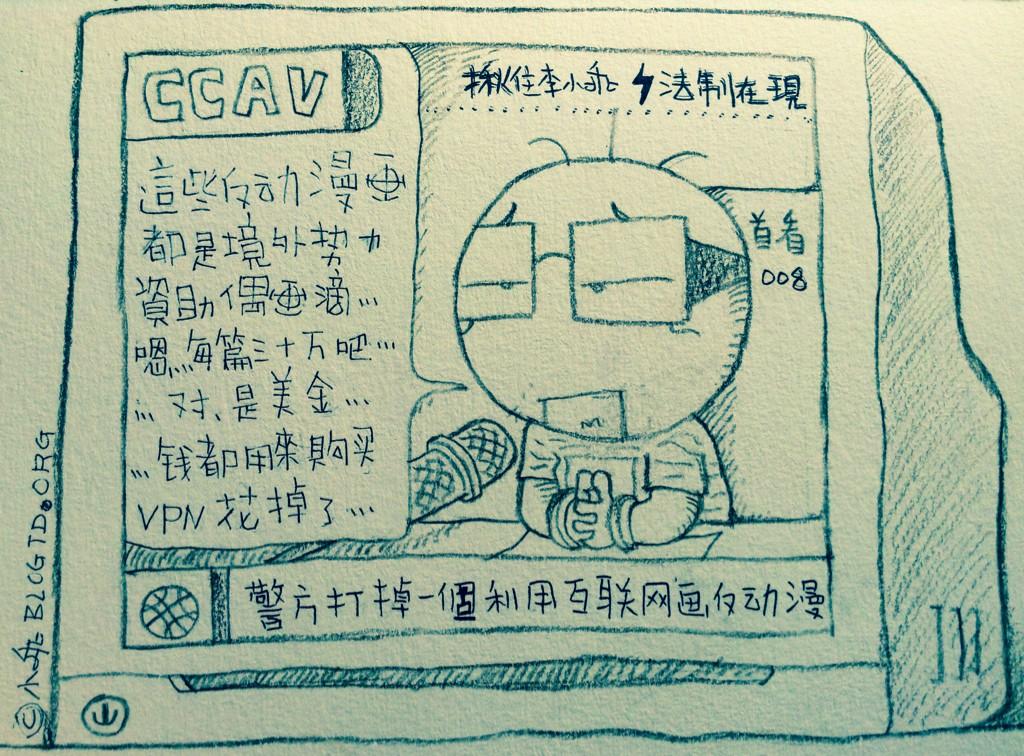 CCAV
揪住李小乖 法制在現
這些反动漫画
都是境外势力
資助偶画滴...
嗯,,,,每篇三十万吧...
... 对、是美金...
...钱都用來購买
VPN 花掉了...
首看
008
警方打掉一個利用互联网画反动漫
山
©小乖 BLOGTD.ORG